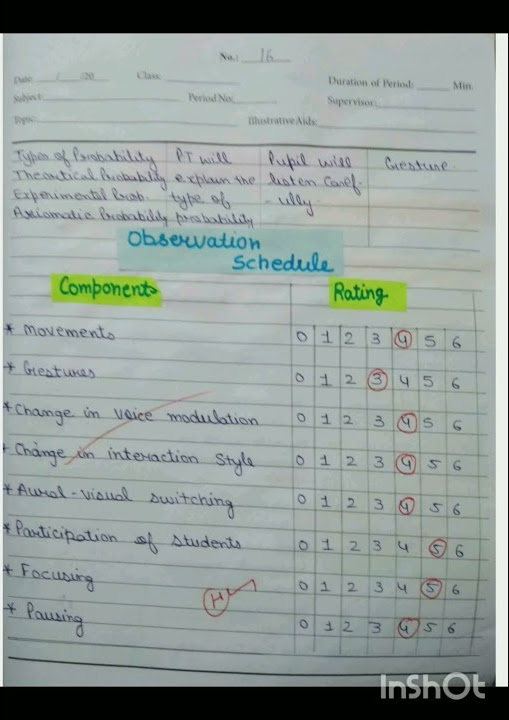 No.: 16
Date: / /20 Class: Duration of Period: Min.
Subject: Period No: Supervisor:
Topic: Illustrative Aids:
Types of Probability PT will Pupil will Gesture.
Theoretical Probability explain the listen Caref-
Experimental Prob. type of -ully.
Axiomatic Probability probability
Observation
Schedule
Components Rating
* Movements 0 1 2 3 4 5 6
* Gestures 0 1 2 3 4 5 6
* Change in voice modulation 0 1 2 3 4 5 6
* Change in interaction Style 0 1 2 3 4 5 6
* Aural-visual switching 0 1 2 3 4 5 6
* Participation of students 0 1 2 3 4 5 6
* Focusing 0 1 2 3 4 5 6
* Pausing 0 1 2 3 4 5 6
InShOt